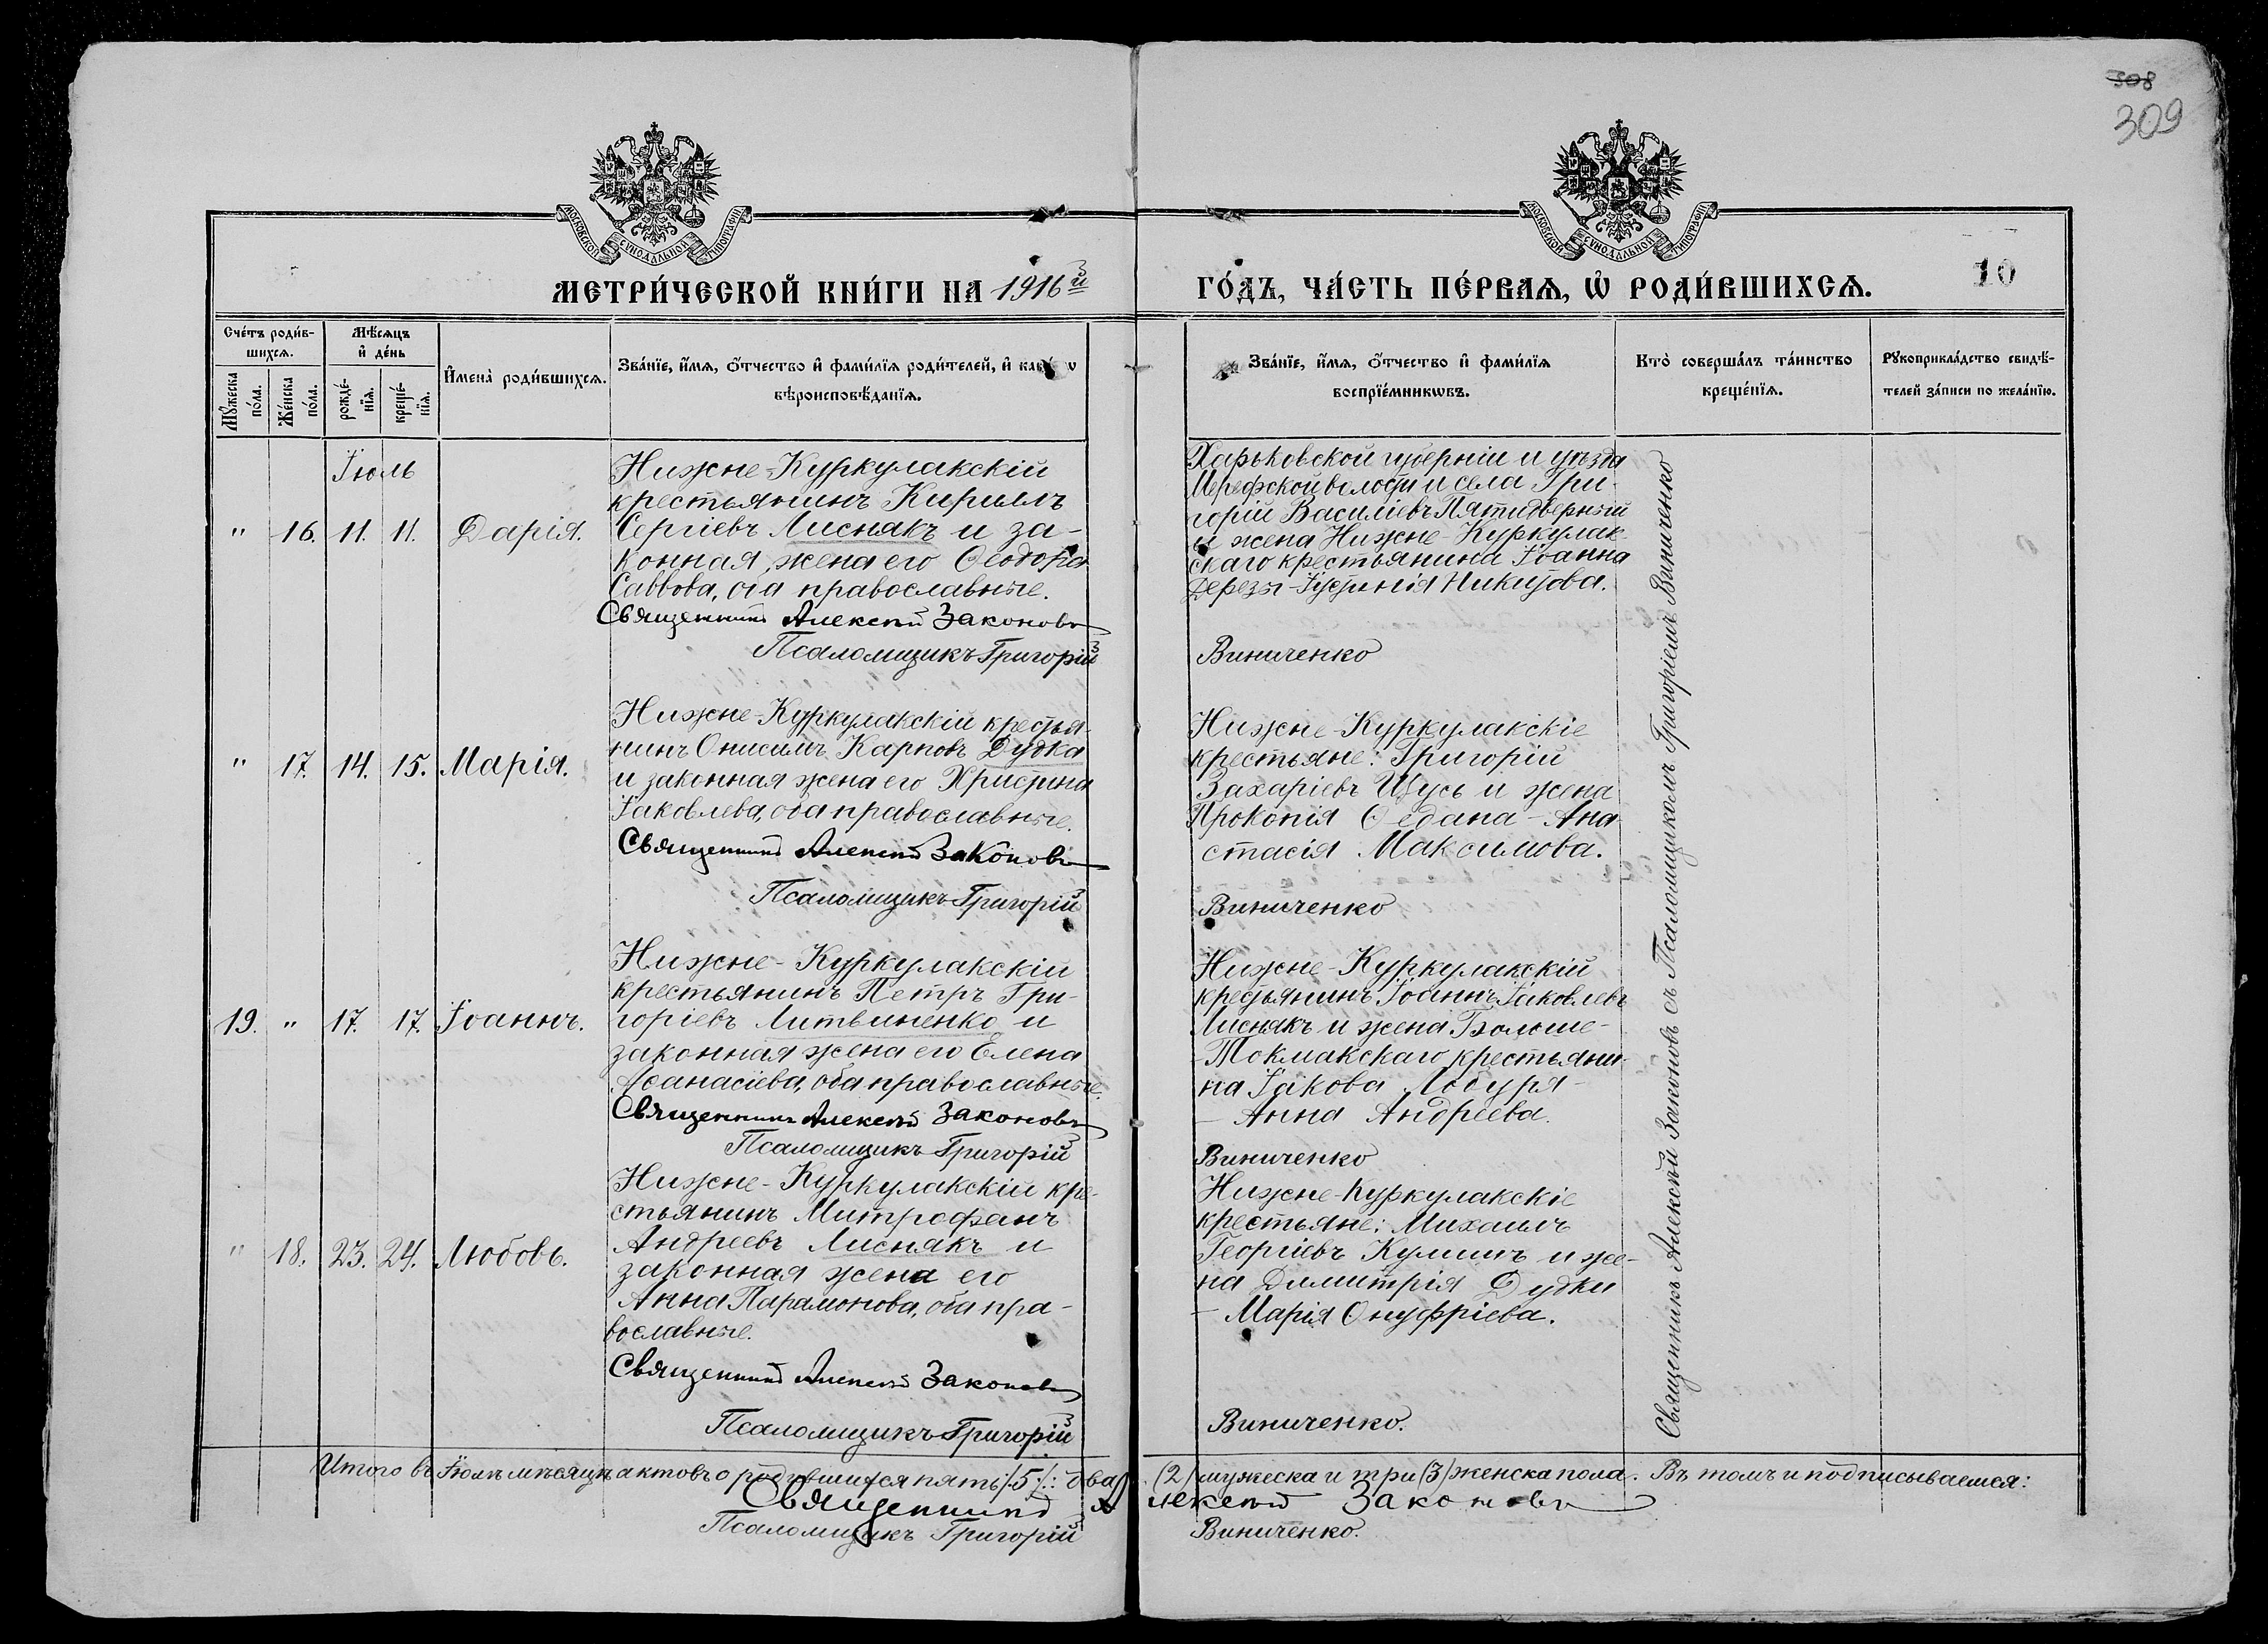 308
309
МОСКОВСКОЙ СѴНОДАЛЬНОЙ ТИПОГРАФІИ
МОСКОВСКОЙ СѴНОДАЛЬНОЙ ТИПОГРАФІИ
МЕТРИ́ЧЕСКОЙ КНИ́ГИ НА 1916й
ГО́ДЪ, ЧА́СТЬ ПЕ́РВАЯ, Ѡ҆ РОДИ́ВШИХСЯ.
10
Сче́тъ роди́в-
шихся.
Мѣ́сяцъ
и҆ де́нь
Мꙋ́жеска по́ла.
Же́нска по́ла.
рожде́-нїя.
креще́-нїя.
И҆мена̀ роди́вшихся.
Зва́нїе, и҆́мя, ѻ҆́тчество и҆ фами́лїя роди́телей, и҆
вѣроисповѣ́данїя.
Зва́нїе, и҆́мя, ѻ҆́тчество и҆ фами́лїя
воспрїе́мникѡвъ.
Кто̀ соверша́лъ та́инство
креще́нїя.
Рꙋкоприкла́дство свидѣ́-
телей за́писи по жела́нїю.
Іюль
" 16. 11. 11. Дарія.
Нижне-Куркулакскій
крестьянинъ Кириллъ
Сергіевъ Лиснякъ и за-
конная жена его Ѳеодора
Саввова, оба православные.
Священникъ Алексѣй Законовъ
Псаломщикъ Григорій
Харьковской губерніи и уѣзда
Мерефской волости и села Гри-
горій Василіевъ Пятидверный
и жена Нижне-Куркулак-
скаго крестьянина Іоанна
Дерезы-Іустинія Никитова.
Виниченко
" 17. 14. 15. Марія.
Нижне-Куркулакскій крестья-
нинъ Онисимъ Карповъ Дудка
и законная жена его Христина
Іаковлева, оба православные.
Священникъ Алексѣй Законовъ
Псаломщикъ Григорій
Нижне-Куркулакскіе
крестьяне: Григорій
Захаріевъ Щусь и жена
Прокопія Седана-Ана-
стасія Максимова.
Виниченко
19. " 17. 17. Іоаннъ.
Нижне-Куркулакскій
крестьянинъ Петръ Гри-
горіевъ Литвиненко и
законная жена его Елена
Аѳанасіева, оба православные.
Священникъ Алексѣй Законовъ
Псаломщикъ Григорій
Нижне-Куркулакскій
крестьянинъ Іоаннъ Іаковлевъ
Лиснякъ и жена Больше-
-Токмакскаго крестьяни-
на Іакова Лобуря-
- Анна Андреева.
Виниченко
" 18. 23. 24. Любовь.
Нижне-Куркулакскій кре-
стьянинъ Митрофанъ
Андреевъ Лиснякъ и
законная жена его
Анна Парамонова, оба пра-
вославные.
Священникъ Алексѣй Законовъ
Псаломщикъ Григорій
Нижне-Куркулакскіе
крестьяне: Михаилъ
Георгіевъ Кулишъ и же-
на Димитрія Дудки
- Марія Онуфріева.
Виниченко.
Священникъ Алексѣй Законовъ съ Псаломщикомъ Григоріемъ Виниченко
Итого въ Іюлѣ мѣсяцѣ актовъ о родившихся пять /:5:/: два /:(2)/ мужеска и три /3/ женска пола. Въ томъ и подписываемся:
Священникъ Алексѣй Законовъ
Псаломщикъ Григорій Виниченко.